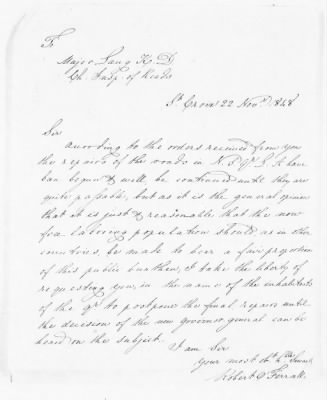 To
Major Lang K. D
Ch. Insp. of Roads
St Croix 22 Novr 1848
Sir
According to the orders received from you
the repairs of the roads in N. P. Qr. I have
been begun & will, be continued until they are
quite passable, but as it is the general opinion
that it is just & reasonable that the now
free labouring population should as in other
countries, be made to bear a fair proportion
of this public burthen, I take the liberty of
requesting you, in the name of the inhabitants
of the Qr. to postpone the final repairs until
the decision of the new governor general can be
heard on the subject.
I am Sir
Your most Obt Servt
Robert Ferrall